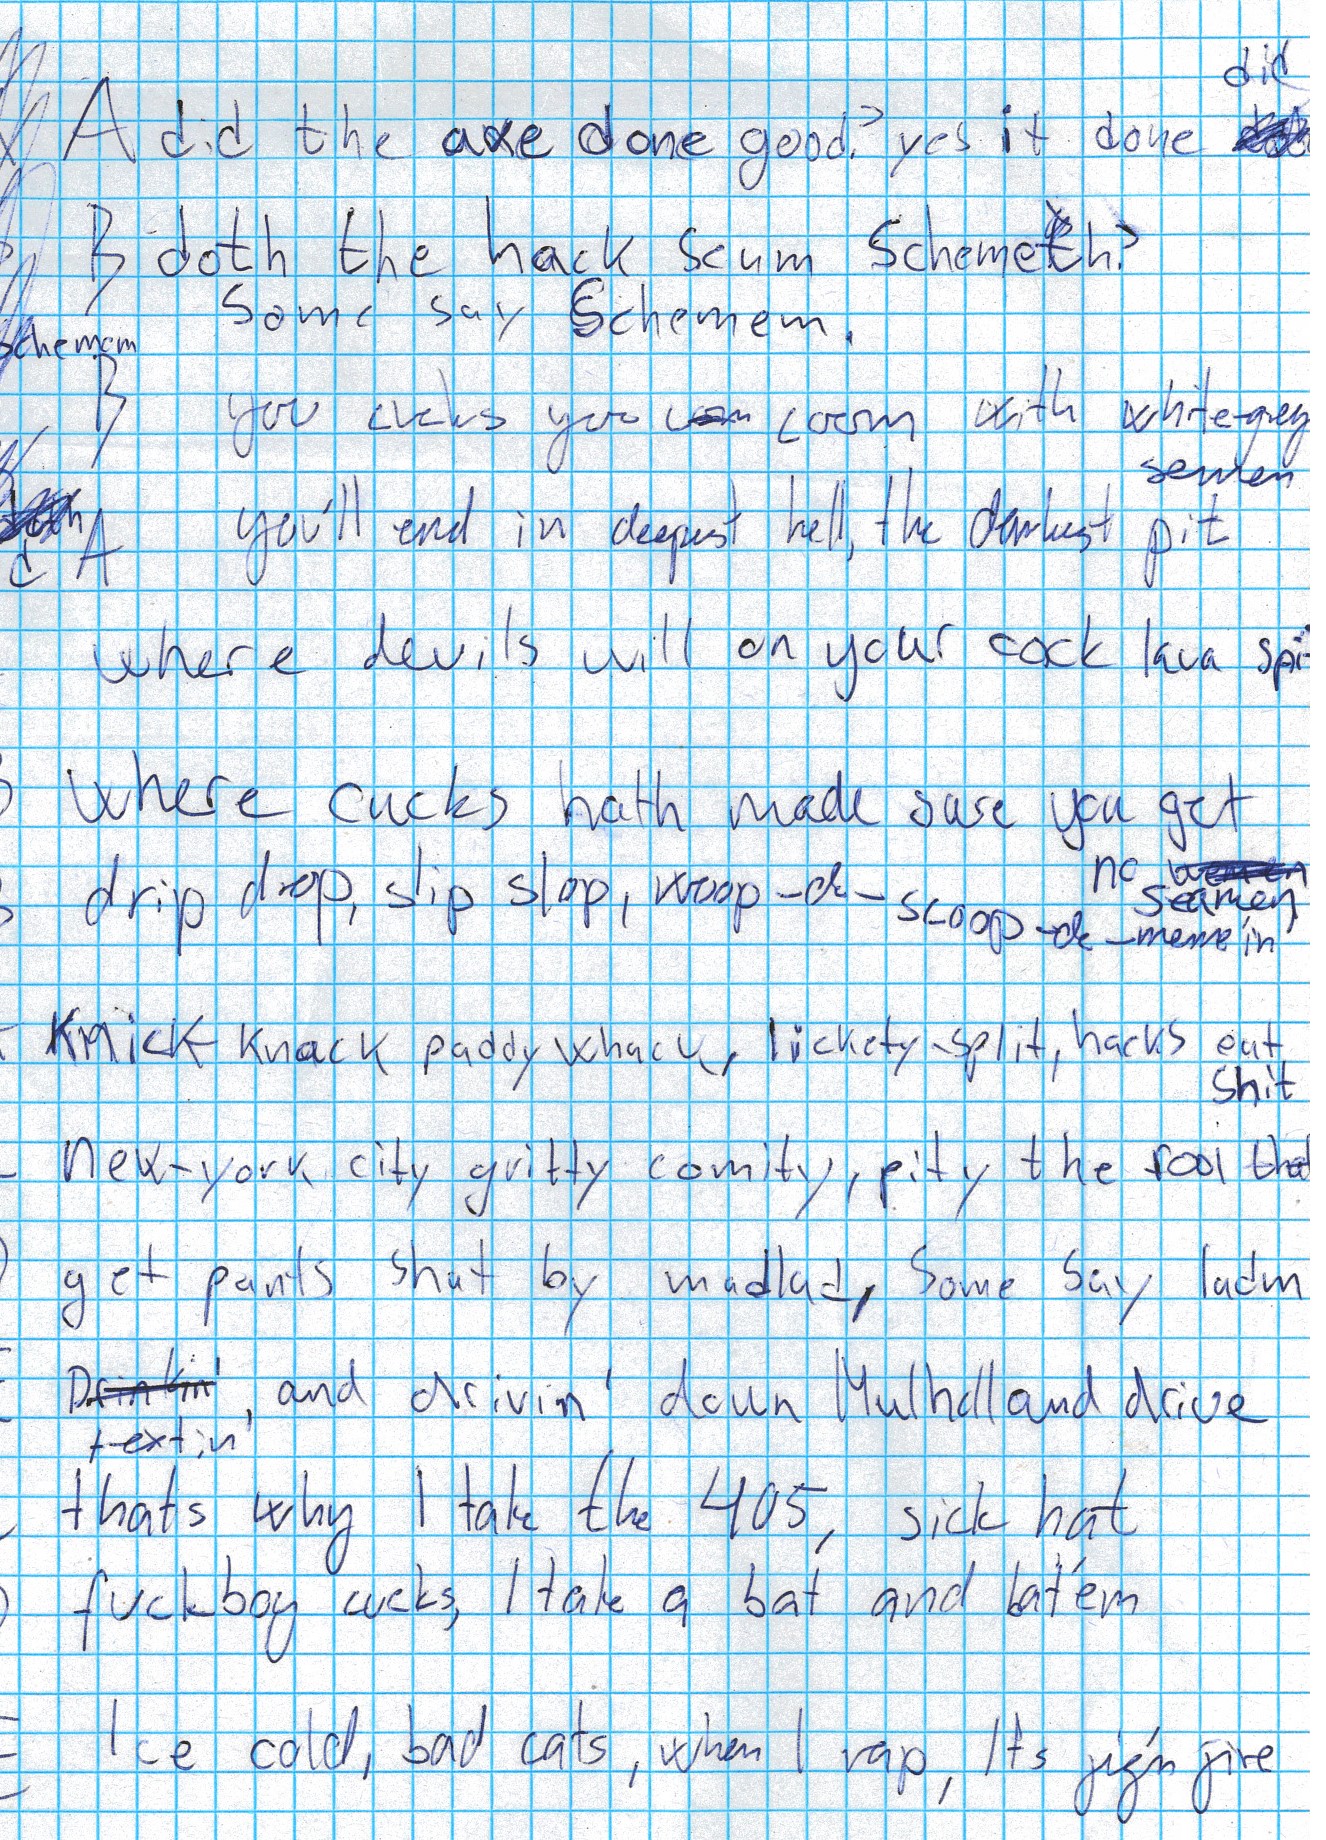 did
A did the axe done good? yes it done
B doth the hack scum Schemeth?
Some say Schemem.
schemem
B you cucks you coom with white-grey
semen
A you'll end in deepest hell, the darkest pit
C
where devils will on your cock lava spit
Where cucks hath made sure you get
no women
seamen
drip drop, slip slop, woop-de-scoop-de-meme'in
Knick Knack paddy whack, lickety-split, hacks eat
shit
New-york city gritty comity, pity the fool that
get pants shat by madlad, Some say ladm
Drinkin', and drivin' down Mulholland drive
textin'
thats why I take the 405, sick hat
fuckboy cucks, I take a bat and bat'em
Ice cold, bad cats, when I rap, It's fire